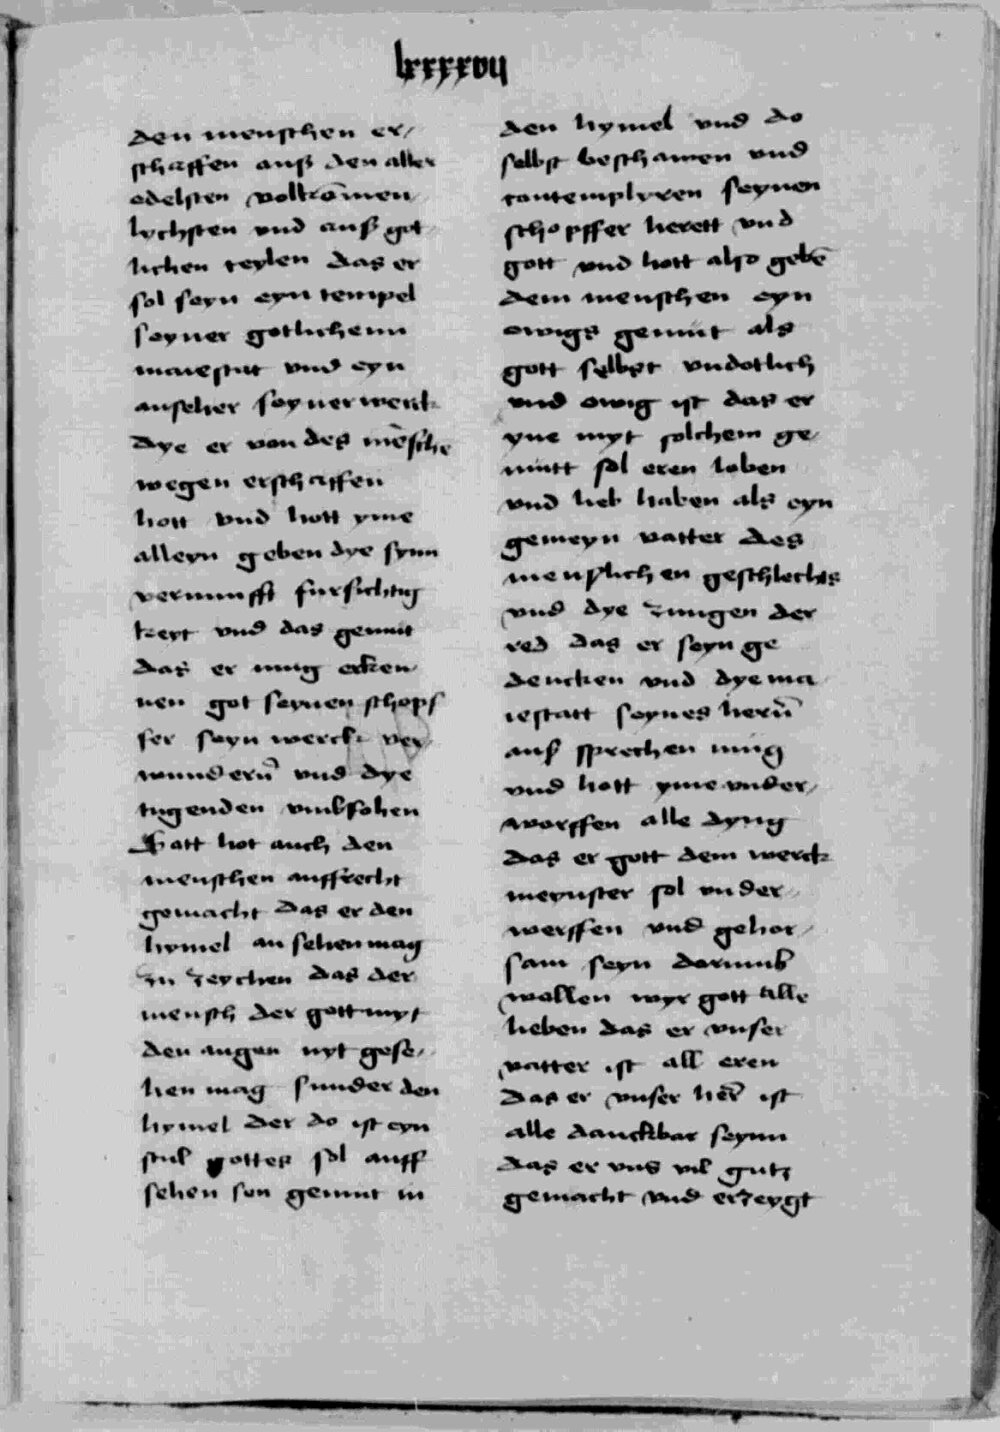 lxxxxvii
den menschen er/
schaffen auß den aller
edelsten volkōmen
lychsten vnd auß got
lichen teylen das er
sol seyn eyn tempel
seyner gotlichenn
maiestat vnd eyn
anseher seyner werck
dye er von des mēsche
wegen erschaffen
hott vnd hott yme
alleyn geben dye synn
vernunfft fursichtig
keyt vnd das gemut
das er mug erken
nen got seynen schopf
fer seyn werck ver
wundern̄ vnd dye
tugenden vmbfohen
Gott hot auch den
menschen auffrecht
gemacht das er den
hymel an sehen mag
zu zeychen das der
mensch der gott myt
den augen nyt gese/
hen mag sunder den
hymel der do ist eyn
stul gottes sol auff
sehen sen gemut in
den hymel vnd do
selbst beschawen vnd
contemplyren seynen
schopffer herett vnd
gott vnd hott also gebē
dem menschen eyn
ewigs gemut als
gott selbst vndotlich
vnd ewig ist das er
yne myt solchem ge/
mutt sol eren loben
vnd lieb haben als eyn
gemeyn vatter des
menschlichen geschlechts
vnd dye zungen der
red das er seyn ge
dencken vnd dye ma
iestatt seynes hern̄
auß sprechen mug
vnd hott yme vnder/
worffen alle dyng
das er gott dem werck
meynster sol vnder
werffen vnd gehor/
sam seyn darumb
wollen wyr gott alle
lieben das er vnser
vatter ist all eren
das er vnser her̄ ist
alle danckbar seynn
das er vns vil gutz
gemacht vnd erzeygt